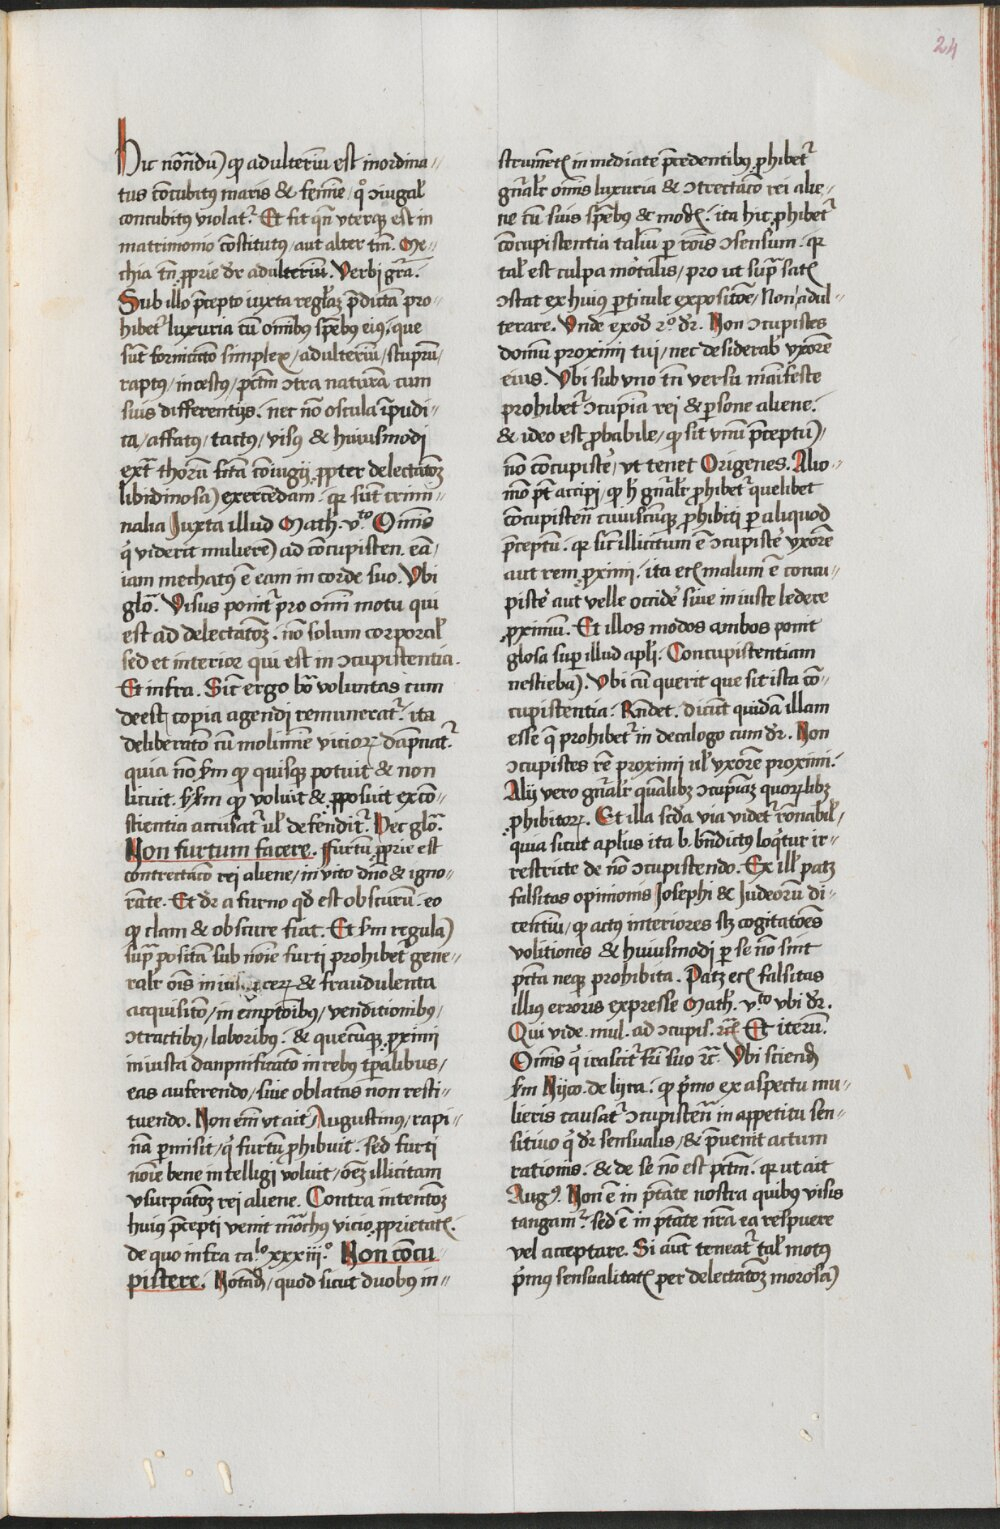 24
Hic notandū ꝙ adulteriū est inordina-
tus cōcubitꝰ maris & femīe, qͦ ↄiugal̕
concubitꝰ violat᷑. Et fit qn̄ vterqꝫ est in
matrimonio cōstitutꝰ, aut alter tm̄. Me-
chia tn̄ ꝓprie dr̄ adulteriū. Verbi grā.
Sub illo p̄cepto iuxta regłaꝫ p̄dictā pro-
hibet᷑ luxuria cū om̄ibꝰ spēbꝰ eiꝰ, que
sūt fornicatō simplex, adulteriū, stuprū,
raptꝰ, incestꝰ, pctm̄ ↄtra naturā cum
suis differentijs. nec nō oscula īpudi-
ca, affatꝰ, tactꝰ, visꝰ & huiusmodi
ext̄ thorū sctm̄ cōiugij ꝓpter delectatōꝫ
libidinosā exercēdam. qꝛ sūt crimi-
nalia Iuxta illud Math̕. v.ᵗᵒ Om̄is
qͥ viderit mulierē ad cōcupisten. eā,
iam mechatꝰ ē eam in corde suo. Vbi
glō. Visus ponit᷑ pro om̄i motu qui
est ad delectatōꝫ. nō solum corporal̕
sed et interior qui est in ↄcupistentia.
Et infra. Sic̄ ergo bō voluntas cum
deest copia agendi remunerat᷑. ita
deliberatō cū molimīe vicioꝝ dāpnat᷑.
quia nō sm̄ ꝙ quisqꝫ potuit & non
licuit. sꝫ sm̄ ꝙ voluit & ꝓposuit ex cō-
scientia accusat᷑ ul̕ defendit᷑. Hec glō.
Non furtum facere. Furtū ꝓprie est
contrectacō rei aliene, inuito dn̄o & igno-
rāte. Et dr̄ a furno qd̕ est obscurū. eo
ꝙ clam & obscure fiat. Et sm̄ regulā
sup̄ positā sub noīe furti prohibet᷑ gene-
ralr̄ oīs & fraudulenta
acquisitō, in emptoībꝰ, venditionibꝰ,
ↄtractibꝰ, laboribꝰ. & quecūqꝫ proximi
iniusta danpnificatō in rebꝰ tꝑalibus,
eas auferendo, siue oblatas non resti-
tuendo. Non em̄ vt ait Augustinꝰ, rapi-
nā ꝑmisit, qͥ furtū ꝓhibuit. sed furti
noīe bene intelligi voluit, oēꝫ illicitam
vsurpatōꝫ rei aliene. Contra intentōꝫ
huiꝰ p̄cepti venit mōchꝰ vicio ꝓprietatꝭ.
de quo infra ca.ˡᵒ xxxiii.ͦ Non cōcu
pistere. Notād̄, quod sicut duobꝰ in-
strumētꝭ inmediate p̄cedentibꝰ ꝓhibet᷑
gn̄alr̄ om̄is luxuria & ↄtrectacō rei alie-
ne cū suis spēbꝰ & modꝭ. ita hic ꝓhibet᷑
cōcupistentia taliū ꝑ rōis ↄsensum. qꝛ
tal̕ est culpa mōtalis, pro ut sup̄ satꝭ
ↄstat ex huiꝰ ꝑticule expositōe, Non adul-
terare. Vnde exod̕ 2ͦ0 dr̄. Non ↄcupistes
domū proximi tui, nec desiderab̕ vxorē
eius. Vbi sub vno tn̄ versu māifeste
prohibet᷑ ↄcupīa rei & ꝑsone aliene.
& ideo est ꝓbabile, ꝙ sit vnū p̄ceptū,
nō cōcupistē, vt tenet Origenes. Alio
mō pt̄ accipi, ꝙ h̕ gn̄alr̄ prohibet᷑ quelibet
cōcupistēn cuiuscūqꝫ ꝓhibiti ꝑ aliquod
p̄ceptū. qꝛ sic̄ illicitum ē ↄcupistē vxorē
aut rem ꝓximi. ita etꝭ malum ē concu-
pistē aut velle occidē siue iniuste ledere
ꝓximū. Et illos modos ambos ponit
glosa suꝑ illud apl̕i. Concupistentiam
nestiebā. Vbi cū querit que sit ista cō-
cupistentia. Rn̄det. dicūt quidā illam
esse q̄ prohibet᷑ in decalogo cum dr̄. Non
ↄcupistes rē proximi ul̕ vxorē proximi.
Alij vero gn̄alr̄ qualibꝫ ↄcupīaꝫ quoꝝlibꝫ
ꝓhibitoꝝ. Et illa scd̄a via videt᷑ rōnabil̕,
quia sicut apl̕us ita b. bn̄dictꝰ loqͥtur ir-
restricte de nō ↄcupistendo. Ex ill̕ patꝫ
falsitas opinionis Iosephi & Iudeorū di-
centiū, ꝙ actꝰ interiores sꝫ cogitatōes
volitiones & huiusmodi ꝑ se nō sint
pctā neqꝫ prohibita. Patꝫ etꝭ falsitas
illiꝰ erroris expresse Math̕. v.ᵗᵒ vbi dr̄.
Qui vide. mul. ad ↄcupis. rc̄ Et iterū.
Om̄is qͥ irascit᷑ fr̄i suo rc̄. Vbi sciend̄
sm̄ Nyco. de lyra. ꝙ p̄mo ex aspectu mu-
lieris causat᷑ ↄcupistēn in appetitu sen-
sitiuo qͥ dr̄ sensualis, & p̄uenit actum
rationis. & de se nō est pctm̄. qꝛ ut ait
Augꝰ. Non ē in ptāte nostra quibꝰ visis
tangam᷑. sed ē in ptāte nr̄a ea respuere
vel acceptare. Si aūt teneat᷑ tal̕ motꝰ
p̄mꝰ sensualitatꝭ per delectatōꝫ morosā